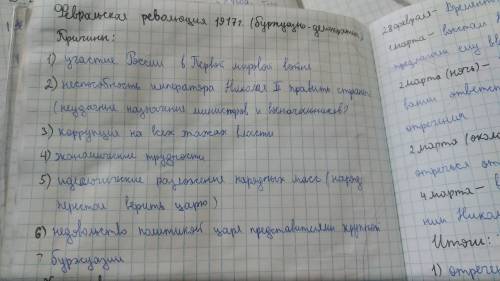 Февральская революция 1917г. (буржуазно-демократич.)
Причины:
1) участие России в Первой мировой войне
2) неспособность императора Николая II править страной
(неудачные назначения министров и военачальников)
3) коррупция на всех этажах власти
4) экономические трудности
5) идеологические разложения народных масс (народ
перестал верить царю)
6) недовольство политикой царя представителями крупной
буржуазии
28 февраля -
1 марта -
предлагаю ему
2 марта (ночь) -
отречения
2 марта (около
отречься от
4 марта -
Итоги:
1) отречен